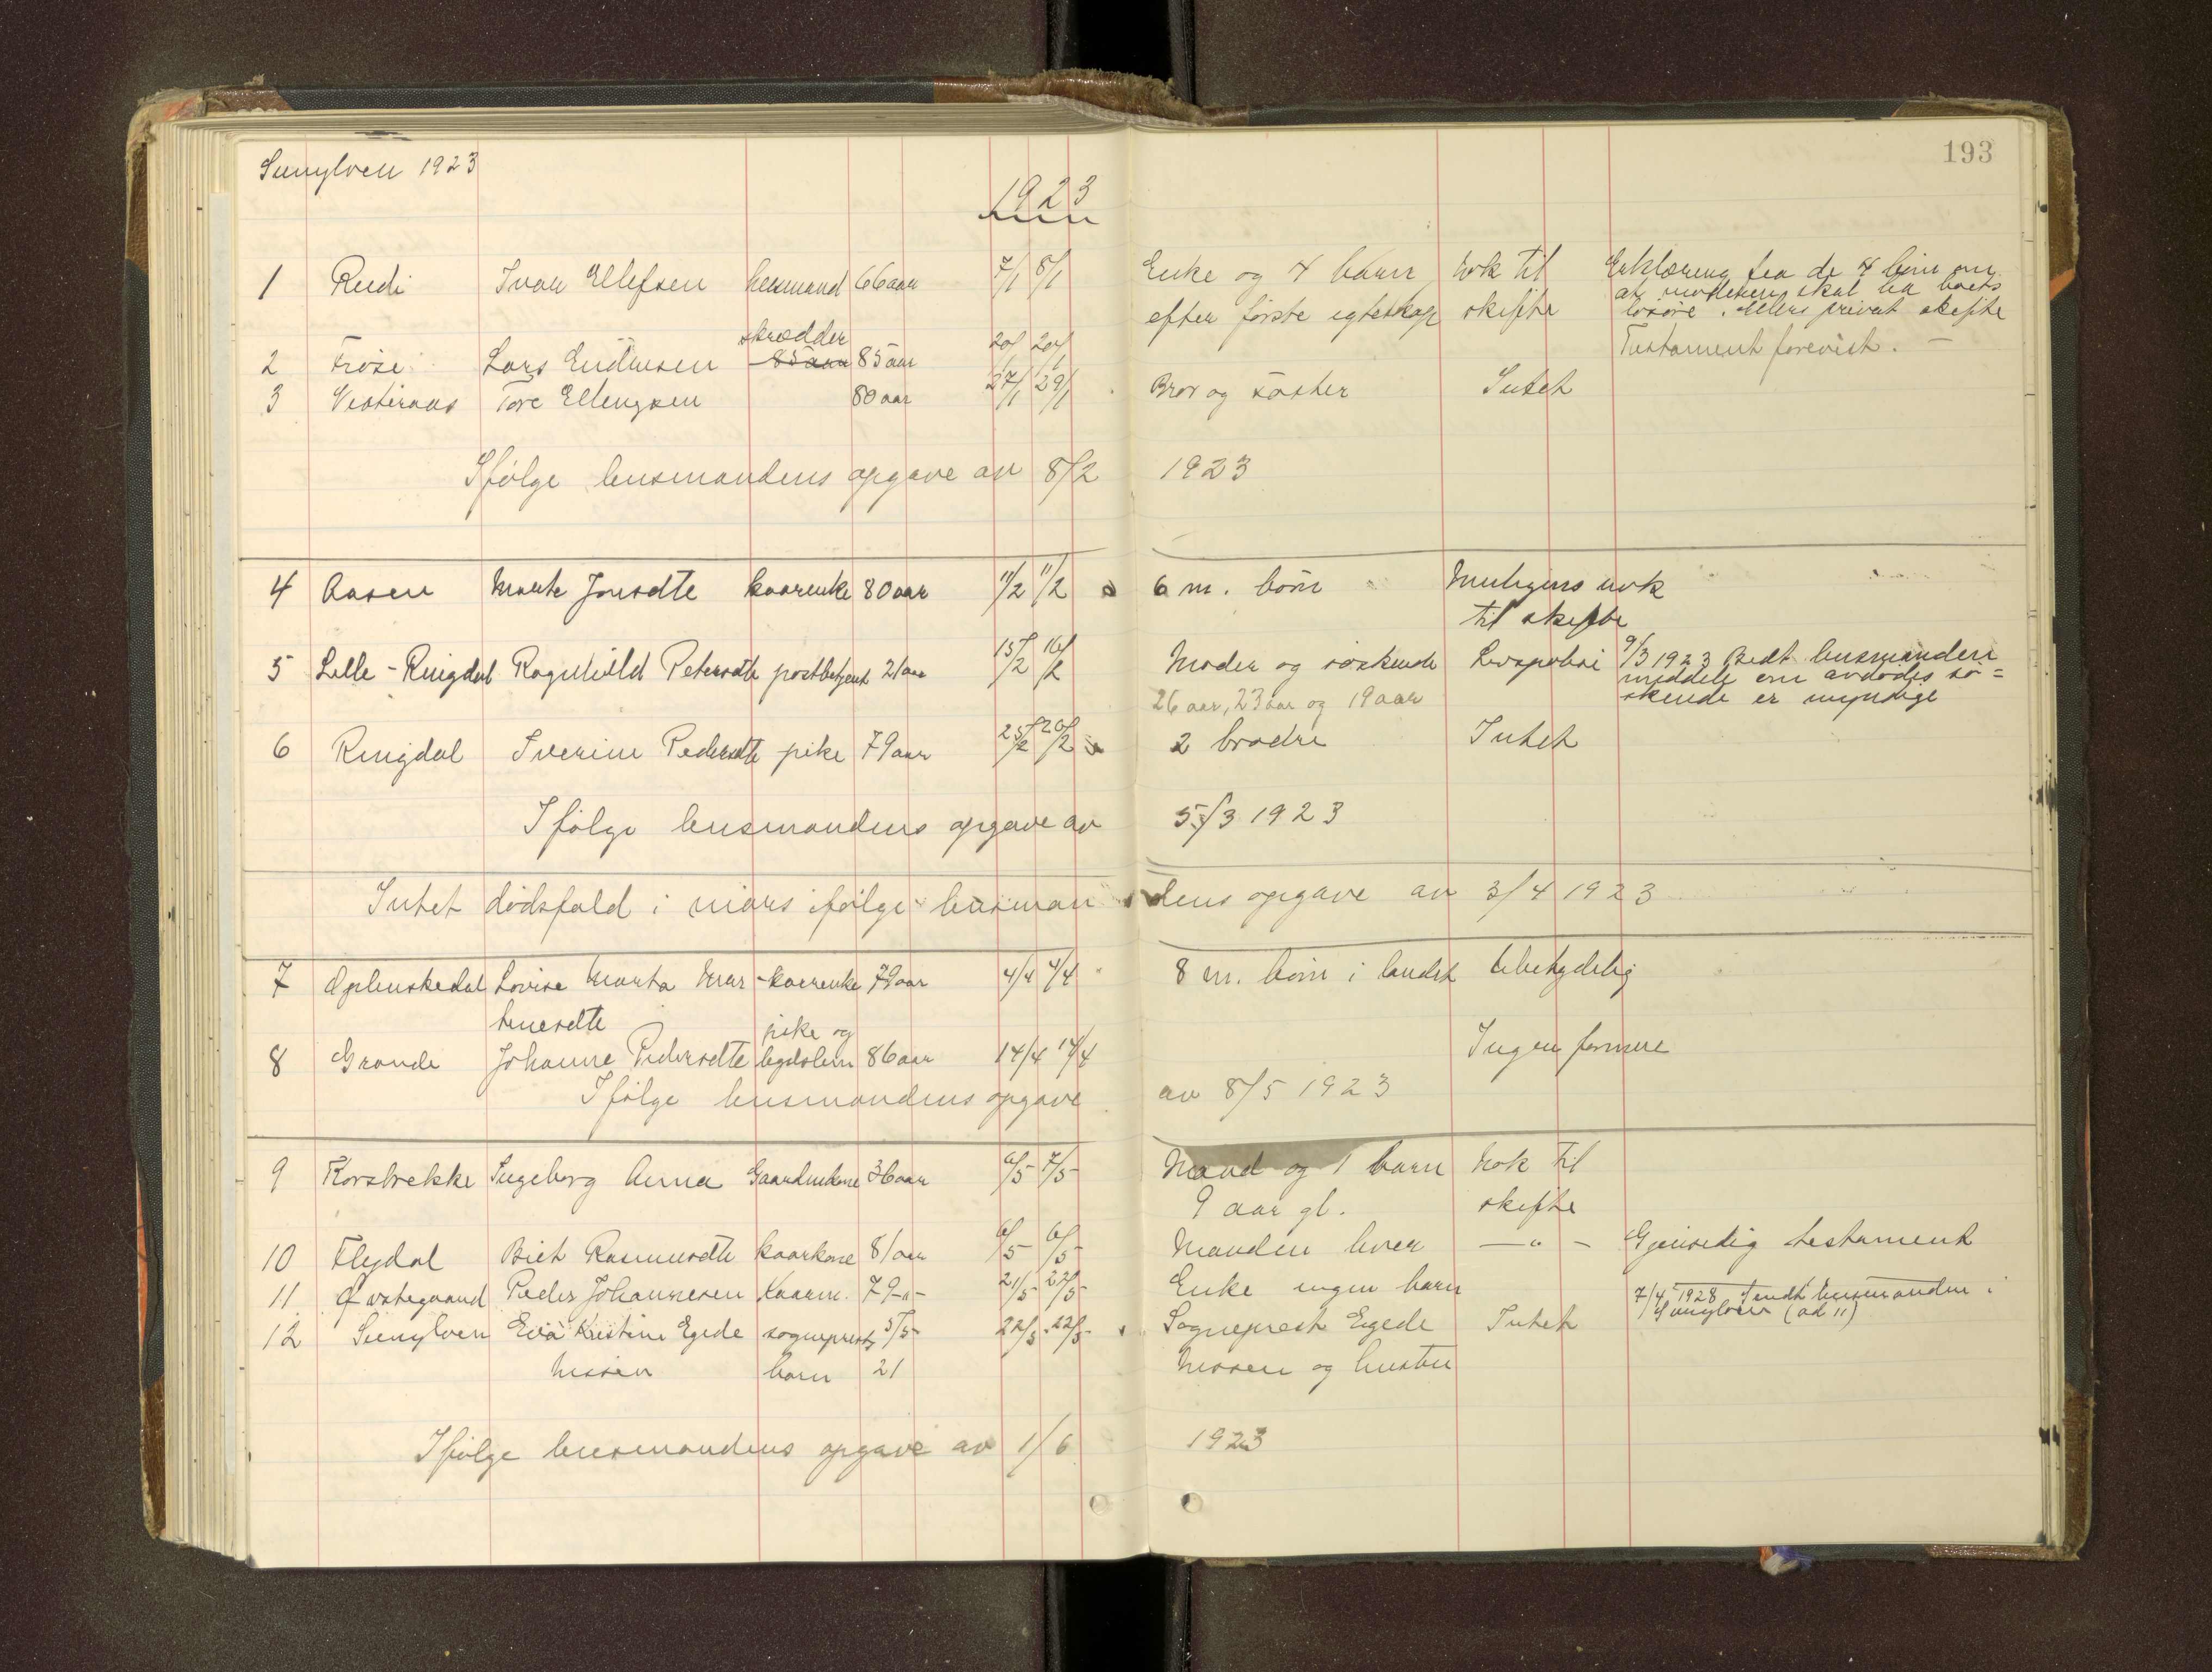 Sunylven 1923
193
1923
1 Rudi Ivar Ellefsen husmand 66 aar 7/1 8/1 Enke og 4 barn Nok til Erklæring fra de 4 børn om
efter første egteskap skifte at moderen skal ha boets
løsøre. Ellers privat skifte
skrædder
2 Frøse Lars Endresen 85 aar 85 aar 20/1 20/1 Testament forevist. —
3 Vesteraas Tore Ellingsen 80 aar 27/1 29/1 Bror og søster Intet
Ifølge lensmandens opgave av 8/2 1923
4 Aasen Marte Jonsdtr kaarenke 80 aar 11/2 11/2 6 m. børn Muligens nok
til skifte
5 Lille-Ringdal Ragnhild Petersdtr postbetjent 21 aar 15/2 16/2 Moder og søskende Livspolise 9/3 1923 Bedt lensmanden
26 aar, 23 aar og 19 aar meddele om avdødes sø=
skende er myndige
6 Ringdal Severine Pedersdtr pike 79 aar 25/2 26/2 2 brødre Intet
Ifølge lensmandens opgave av 5/3 1923
Intet dødsfald i mars ifølge lensmandens opgave av 3/4 1923
7 Oplenskedal Lovise Marta Mar- kaarenke 79 aar 4/4 4/4 8 m. børn i landet Ubetydelig
tinesdtr pike og
8 Grande Johanne Pedersdtr legdslem 86 aar 14/4 14/4 Ingen formue
Ifølge lensmandens opgave av 8/5 1923
9 Korsbrekke Ingeborg Anna Gaardmkone 36 aar 6/5 7/5 Mand og 1 barn Nok til
9 aar gl. skifte
10 Flydal Brit Rasmusdtr kaarkone 81 aar 6/5 6/5 Manden lever — " — Gjensidig testament
11 Øvstegaard Peder Johannesen Kaarm. 79 -"- 21/5 22/5 Enke ingen barn 7/4 1928 Sendt lensmanden i
Sunylven (ad 11)
12 Sunylven Eva Kristine Egede sogneprests 5/5 22/5 22/5 Sogneprest Egede Intet
Nissen barn 21 Nissen og hustru
Ifølge lensmandens opgave av 1/6 1923